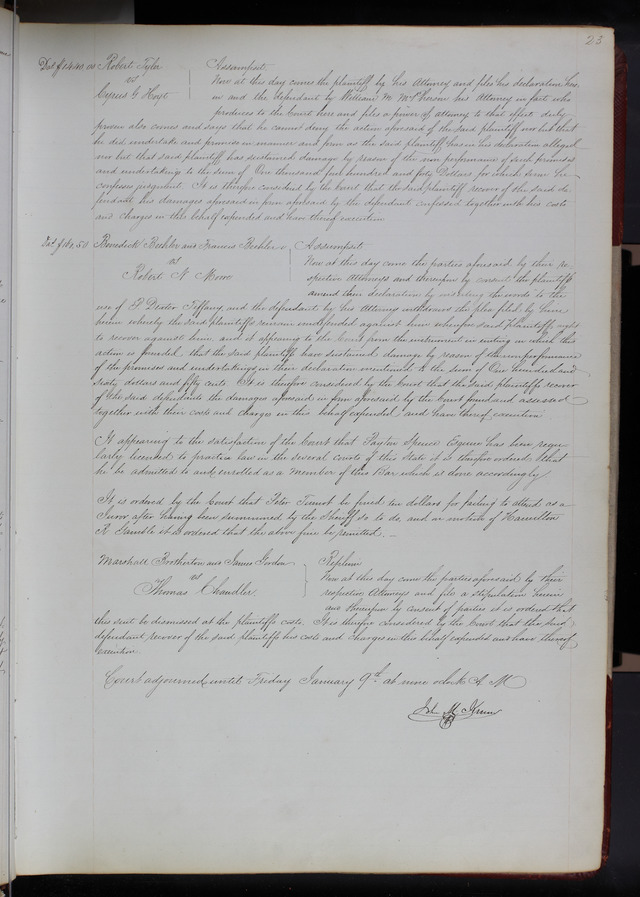 23
Dat $1440.00 Robert Tyler Assumpsit
vs Now at this day comes the plaintiff by his Attorney and files his declaration here
Cyrus G Hoyt in and the defendant by William M McPherson his Attorney in fact who
produces to the Court here and files a power of attorney to that effect duly
proven also comes and says that he cannot deny the action aforesaid of the said plaintiff nor but that
he did undertake and promise in manner and form as the said plaintiff has in his declaration alleged
nor but that said plaintiff has sustained damage by reason of the non performance of such promises
and undertakings to the sum of One thousand four hundred and forty Dollars for which sum he
confesses judgment. It is therefore considered by the Court that the said plaintiff recover of the said de
fendant his damages aforesaid in form aforesaid by the defendant confessed together with his costs
and charges in this behalf expended and have thereof execution
Dat $160.50 Benedick Beehler and Francis Beehler Assumpsit
vs Now at this day came the parties aforesaid by their re
Robert N Moore spective Attorneys and thereupon by consent the plaintiffs
amend their declaration by inserting the words to the
use of P. Dexter Tiffany, and the defendant by his Attorney withdraws the plea filed by him
herein whereby the said plaintiffs remain undefended against him wherefore said plaintiffs ought
to recover against him, and it appearing to the Court from the instrument in writing on which this
action is founded that the said plaintiffs have sustained damage by reason of the non performance
of the promises and undertakings in their declaration mentioned to the sum of One hundred and
sixty dollars and fifty cents It is therefore considered by the Court that the said plaintiffs recover
of the said defendant the damages aforesaid in form aforesaid by the Court found and assessed
together with their costs and charges in this behalf expended and have thereof execution
It appearing to the satisfaction of the Court that Esquire has been regu
larly licensed to practice law in the several Courts of this State it is therefore ordered that
he be admitted to and enrolled as a member of this Bar which is done accordingly
It is ordered by the Court that Peter be fined ten dollars for failing to attend as a
Juror after having been summoned by the Sheriff so to do, and on motion of Hamilton
R Gamble it is ordered that the above fine be remitted. —
Marshall Brotherton and James Gordon Replevin
vs Now at this day came the parties aforesaid by their
Thomas Chandler respective Attorneys and file a stipulation herein
and thereupon by consent of parties it is ordered that
this suit be dismissed at the plaintiffs costs. It is therefore considered by the Court that the said
defendant recover of the said plaintiffs his costs and charges in this behalf expended and have thereof
execution
Court adjourned until Friday January 9th at nine oclock A M
John M